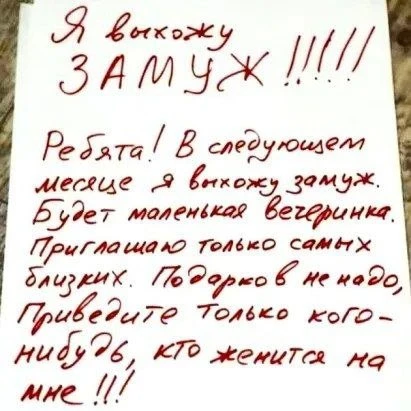 Я выхожу
ЗАМУЖ !!!!!!
Ребята! В следующем
месяце я выхожу замуж.
Будет маленькая вечеринка.
Приглашаю только самых
близких. Подарков не надо,
Приведите только кого-
нибудь, кто женится на
мне !!!